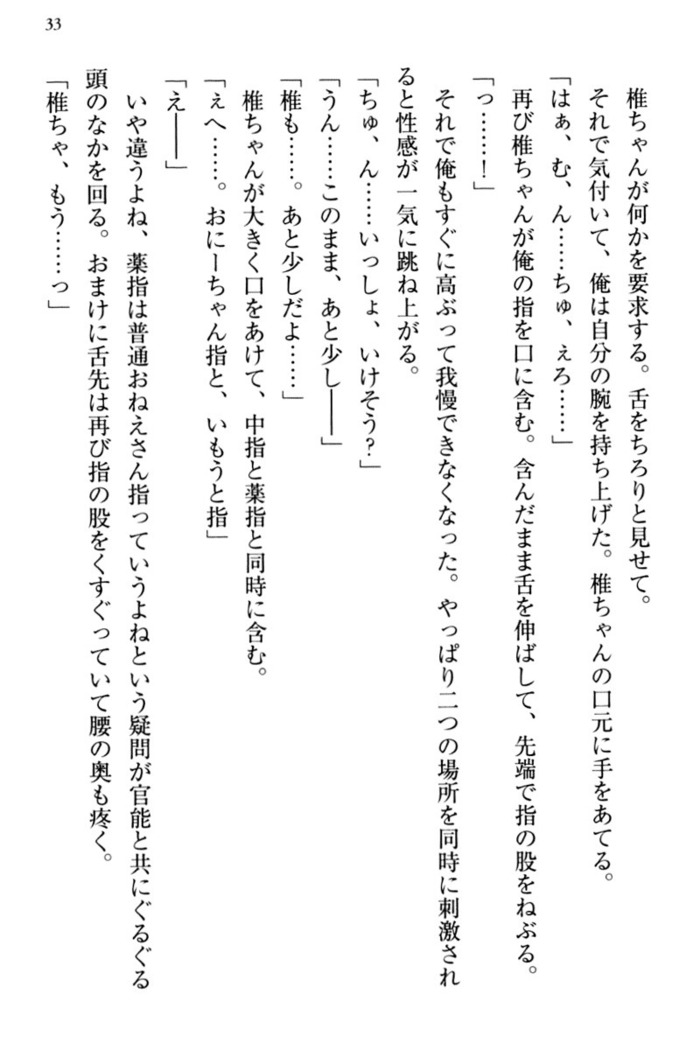 33
椎ちゃんが何かを要求する。舌をちろりと見せて。
それで気付いて、俺は自分の腕を持ち上げた。椎ちゃんの口元に手をあてる。
「はぁ、む、ん……ちゅ、ぇろ……」
再び椎ちゃんが俺の指を口に含む。含んだまま舌を伸ばして、先端で指の股をねぶる。
「っ……！」
それで俺もすぐに高ぶって我慢できなくなった。やっぱり二つの場所を同時に刺激され
ると性感が一気に跳ね上がる。
「ちゅ、ん……いっしょ、いけそう？」
「うん……このまま、あと少し――」
「椎も……。あと少しだよ……」
椎ちゃんが大きく口をあけて、中指と薬指と同時に含む。
「ぇへ……。おにーちゃん指と、いもうと指」
「え――」
いや違うよね、薬指は普通おねえさん指っていうよねという疑問が官能と共にぐるぐる
頭のなかを回る。おまけに舌先は再び指の股をくすぐっていて腰の奥も疼く。
「椎ちゃ、もう……っ」